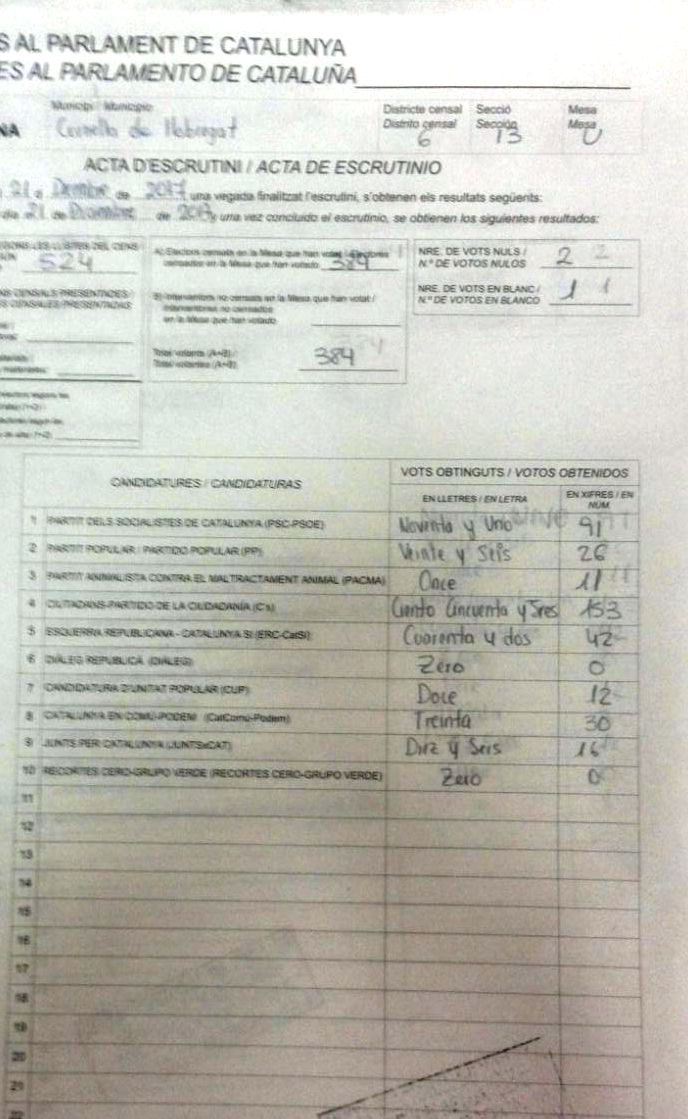 S AL PARLAMENT DE CATALUNYA
ES AL PARLAMENTO DE CATALUÑA
NA
Municipi / Municipio
Cornellà de Llobregat
Districte censal
Distrito censal 6
Secció
Sección 13
Mesa
Mesa U
ACTA D'ESCRUTINI / ACTA DE ESCRUTINIO
21 de de 2017, una vegada finalitzat l'escrutini, s'obtenen els resultats següents:
de 21 de de 2017 y una vez concluido el escrutinio, se obtienen los siguientes resultados:
524
A) Electors censats en la Mesa que han votat /
censados en la Mesa que han votado 384
B) Interventors no censats en la Mesa que han votat /
Interventores no censados
en la Mesa que han votado
Total votants (A+B) /
Total votantes (A+B) 384
NRE. DE VOTS NULS /
N.º DE VOTOS NULOS 2 2
NRE. DE VOTS EN BLANC /
N.º DE VOTOS EN BLANCO 1 1
CANDIDATURES / CANDIDATURAS
VOTS OBTINGUTS / VOTOS OBTENIDOS
EN LLETRES / EN LETRA
EN XIFRES / EN NÚM
1 PARTIT DELS SOCIALISTES DE CATALUNYA (PSC-PSOE) Noventa y Uno 91
2 PARTIT POPULAR / PARTIDO POPULAR (PP) Veinte y Seis 26
3 PARTIT ANIMALISTA CONTRA EL MALTRACTAMENT ANIMAL (PACMA) Once 11
4 CIUTADANS-PARTIDO DE LA CIUDADANÍA (C's) Ciento Cincuenta y Tres 153
5 ESQUERRA REPUBLICANA - CATALUNYA SÍ (ERC-CatSí) Cuarenta y dos 42
6 DIÀLEG REPUBLICÀ (DIÀLEG) Zero 0
7 CANDIDATURA D'UNITAT POPULAR (CUP) Doce 12
8 CATALUNYA EN COMÚ-PODEM (CatComú-Podem) Treinta 30
9 JUNTS PER CATALUNYA (JUNTSxCAT) Diez y Seis 16
10 RECORTES CERO-GRUPO VERDE (RECORTES CERO-GRUPO VERDE) Zero 0
11
12
13
14
15
16
17
18
19
20
21
22